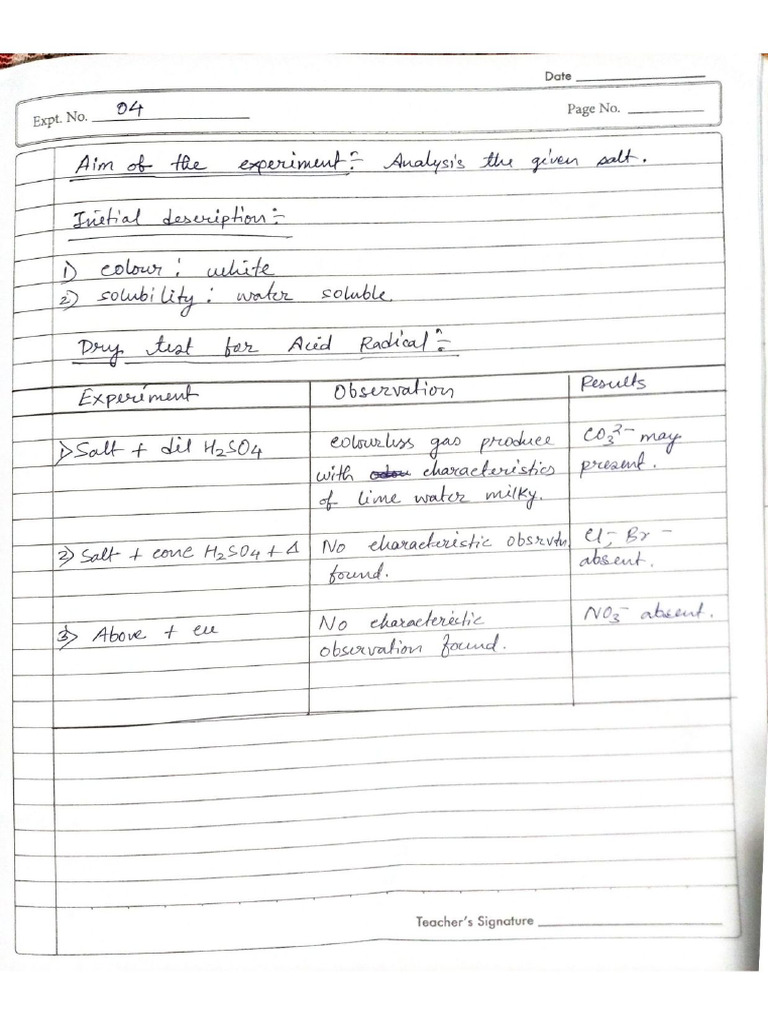 Date
Expt. No. 04
Page No.
Aim of the experiment:- Analysis the given salt.
Initial description:-
1) colour : white
2) solubility : water soluble.
Dry test for Acid Radical:-
Experiment Observation Results
1) Salt + dil H2SO4 colourless gas produce CO3 2- may
with characteristics present.
of lime water milky.
2) Salt + conc H2SO4 + Δ No characteristic obsrvtn. Cl-, Br -
found. absent.
3) Above + cu No characteristic NO3- absent.
observation found.
Teacher's Signature